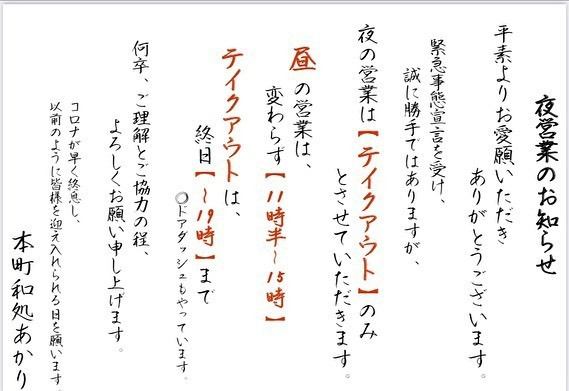 夜営業のお知らせ
平素よりお愛願いただき
ありがとうございます。
緊急事態宣言を受け、
誠に勝手ではありますが、
夜の営業は【テイクアウト】のみ
とさせていただきます。
昼の営業は、
変わらず【11時半～15時】
テイクアウトは、
終日【～19時】まで
○ドアダッシュもやっています。
何卒、ご理解とご協力の程、
よろしくお願い申し上げます。
コロナが早く終息し、
以前のように皆様を迎え入れられる日を願います。
本町和処あかり